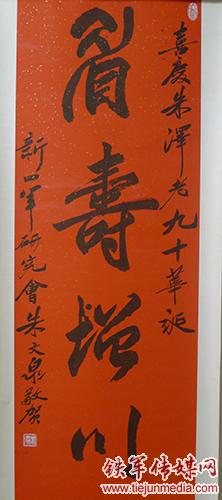 喜慶朱澤老九十華誕
眉壽增川
新四军研究會朱文泉敬贺
铁军传媒网
www.tiejunmedia.com